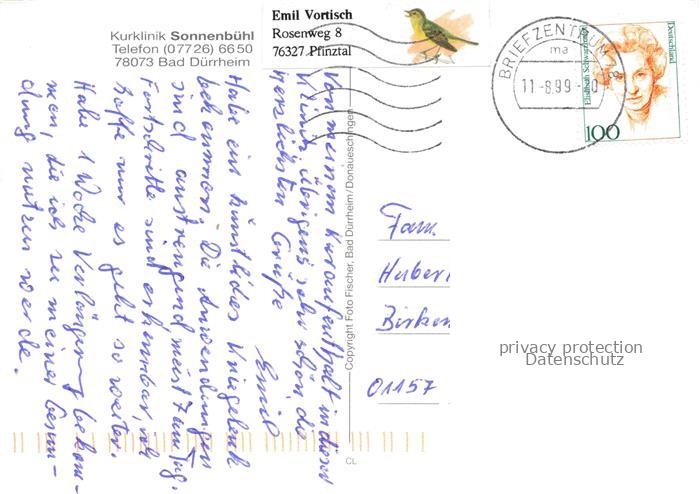 Kurklinik Sonnenbühl
Telefon (07726) 6650
78073 Bad Dürrheim
Emil Vortisch
Rosenweg 8
76327 Pfinztal
BRIEFZENTRUM 78
ma
11.-8.99.-
Deutschland
Elisabeth Schwarzhaupt
100
Von meinem Kuraufenthalt in dieser
Klinik, übrigens sehr schön, die
herzlichsten Grüße
Emil
Habe ein künstliches Kniegelenk
bekommen. Die Anwendungen
sind anstrengend meist 7 am Tag.
Fortschritte sind erkennbar, ich
hoffe nur es geht so weiter.
Habe 1 Woche Verlängerung bekom-
men, die ich zu meiner Gesun-
dung nutzen werde.
Copyright Foto Fischer, Bad Dürrheim/Donaueschingen
CL
Fam.
Huber
Birken
01157
privacy protection
Datenschutz